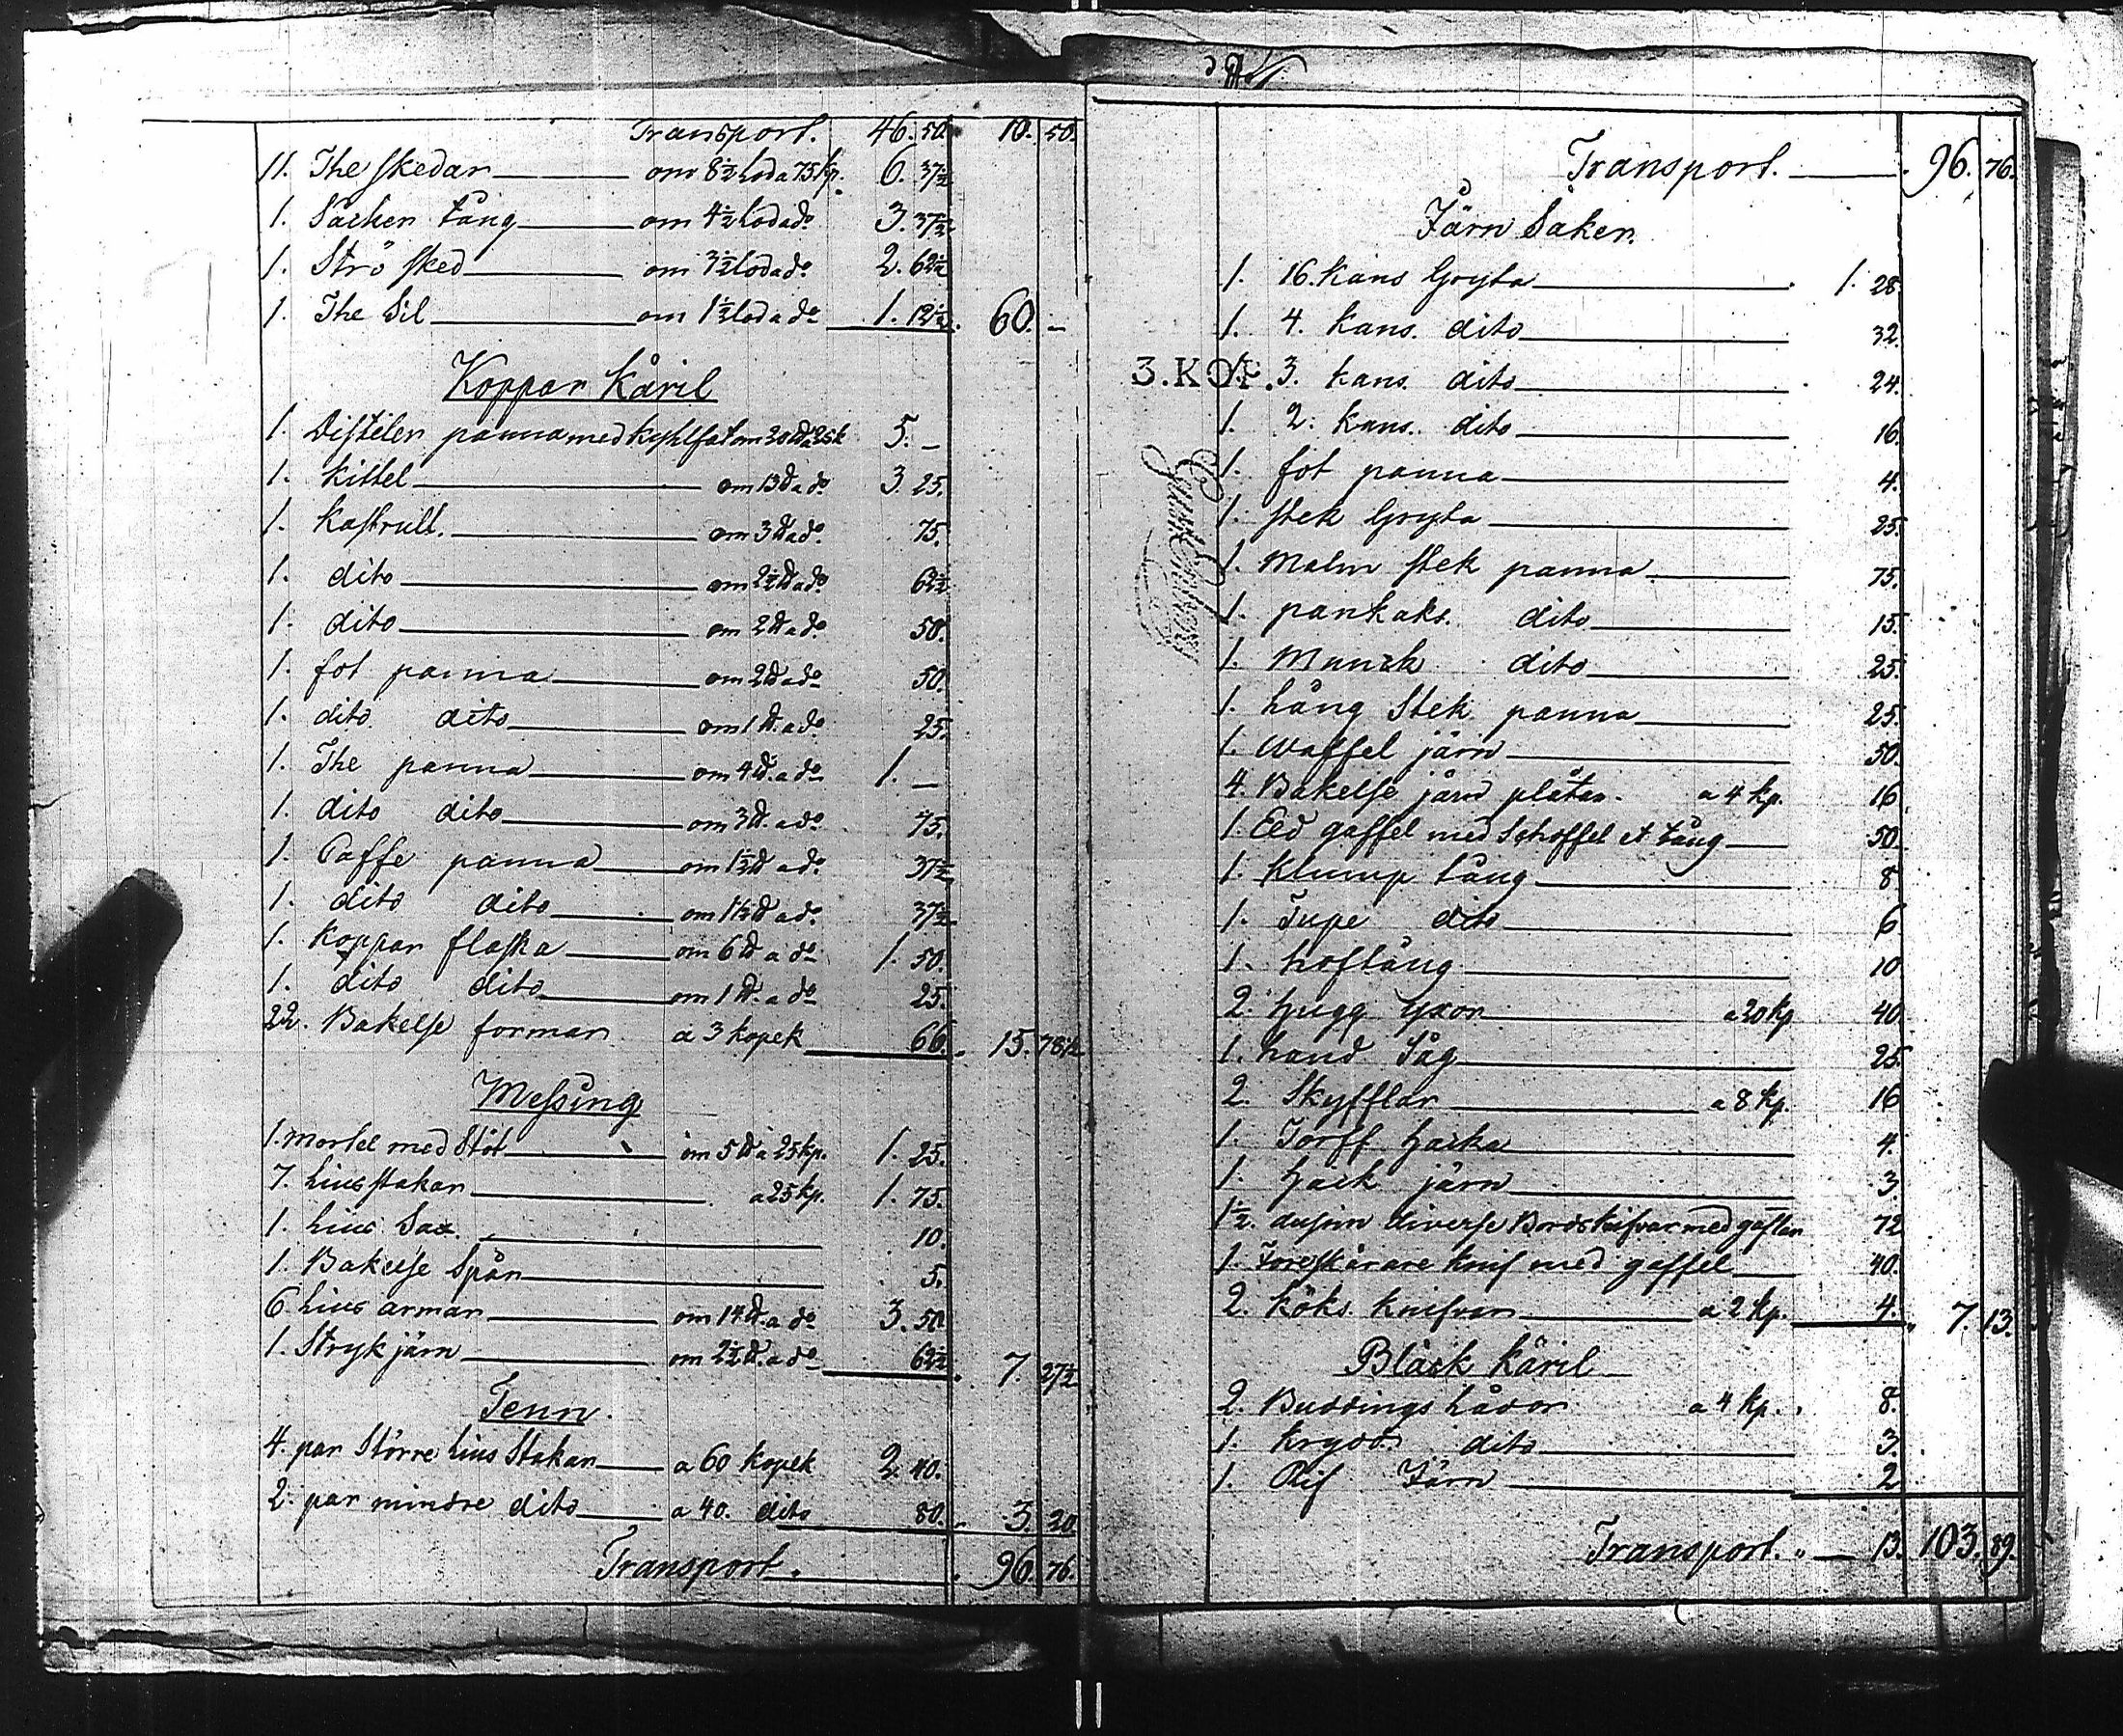 Transport. 46. 50. 10. 50.
11. The skedar om 8½ lod a 75 kp. 6. 37½
1. Såcker tång om 4½ lod a do 3. 37½
1. Strö sked om 3½ lod a do 2. 62½
1. The Sil om 1½ lod a do 1. 12½. 60. -
Koppar Kåril
1. Distiler panna med kyhlfat om 20 ℔ a 25 k 5. -
1. Kittel om 13 ℔ a do 3. 25.
1. Kastrull. om 3 ℔ a do 75.
1. dito om 2½ ℔ a do 62½
1. dito om 2 ℔ a do 50.
1. fot panna om 2 ℔ a do 50.
1. dito dito om 1 ℔. a do 25.
1. The panna om 4 ℔. a do 1. -
1. dito dito om 3 ℔. a do 75.
1. Caffe panna om 1½ ℔ a do 37½
1. dito dito om 1½ ℔ a do 37½
1. Koppar flaska om 6 ℔ a do 1. 50.
1. dito dito om 1 ℔. a do 25.
22. Bakelse formar a 3 kopek 66. 15. 78½
Messing
1. Mortel med Stöt om 5 ℔ a 25 kp. 1. 25.
7. Lius stakar a 25 kp. 1. 75.
1. Lius Sax. 10.
1. Bakelse Spån 5.
6 Lius armar om 14 ℔. a do 3. 50.
1. Stryk järn om 2½ ℔. a do 62½ 7. 27½
Tenn.
4. par Större Lius Stakar a 60 kopek 2. 40.
2. par mindre dito a 40. dito 80. 3. 20.
Transport. 96. 76.
Transport. 96. 76.
Järn Saker.
1. 16. Kans Gryta 1. 28
1. 4. kans. dito 32.
3.KOP.
1. 3. kans. dito 24.
1. 2. kans. dito 16.
1. fot panna 4.
1. stek Gryta 25.
1. Malm stek panna 75.
1. pankaks. dito 15.
1. Munck dito 25.
1. Lång Stek panna 25.
1. Waffel järn 50.
4. Bakelse järn plåtar. a 4 kp. 16
1. Eld gaffel med Schoffel et tång 50.
1. Klump tång 8
1. Tupe dito 6
1. hoftång 10
2. hugg yxor a 20 kp 40.
1. hand Såg 25
2. Skyfflar a 8 kp. 16
1. Torff hacka 4.
1. hack järn 3.
1½. dusin diverse Bordsknifvar med gaflar 72
1. Foreskärare knif med gaffel 40.
2. Köks knifvar a 2 kp. 4. 7. 13.
Bläck Käril
2. Buddings Lådor a 4 kp. 8.
1. Krydd dito 3.
1. Rif Järn 2
Transport. 13. 103. 89.